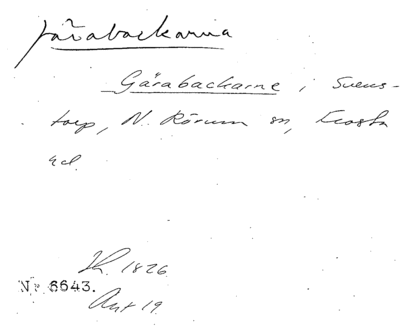 järabackarna
Gärabackarne i Svens-
torp, N. Rörum sn, Frosta
hd.
Th. 1826
Nr 6643.
Akt 19.